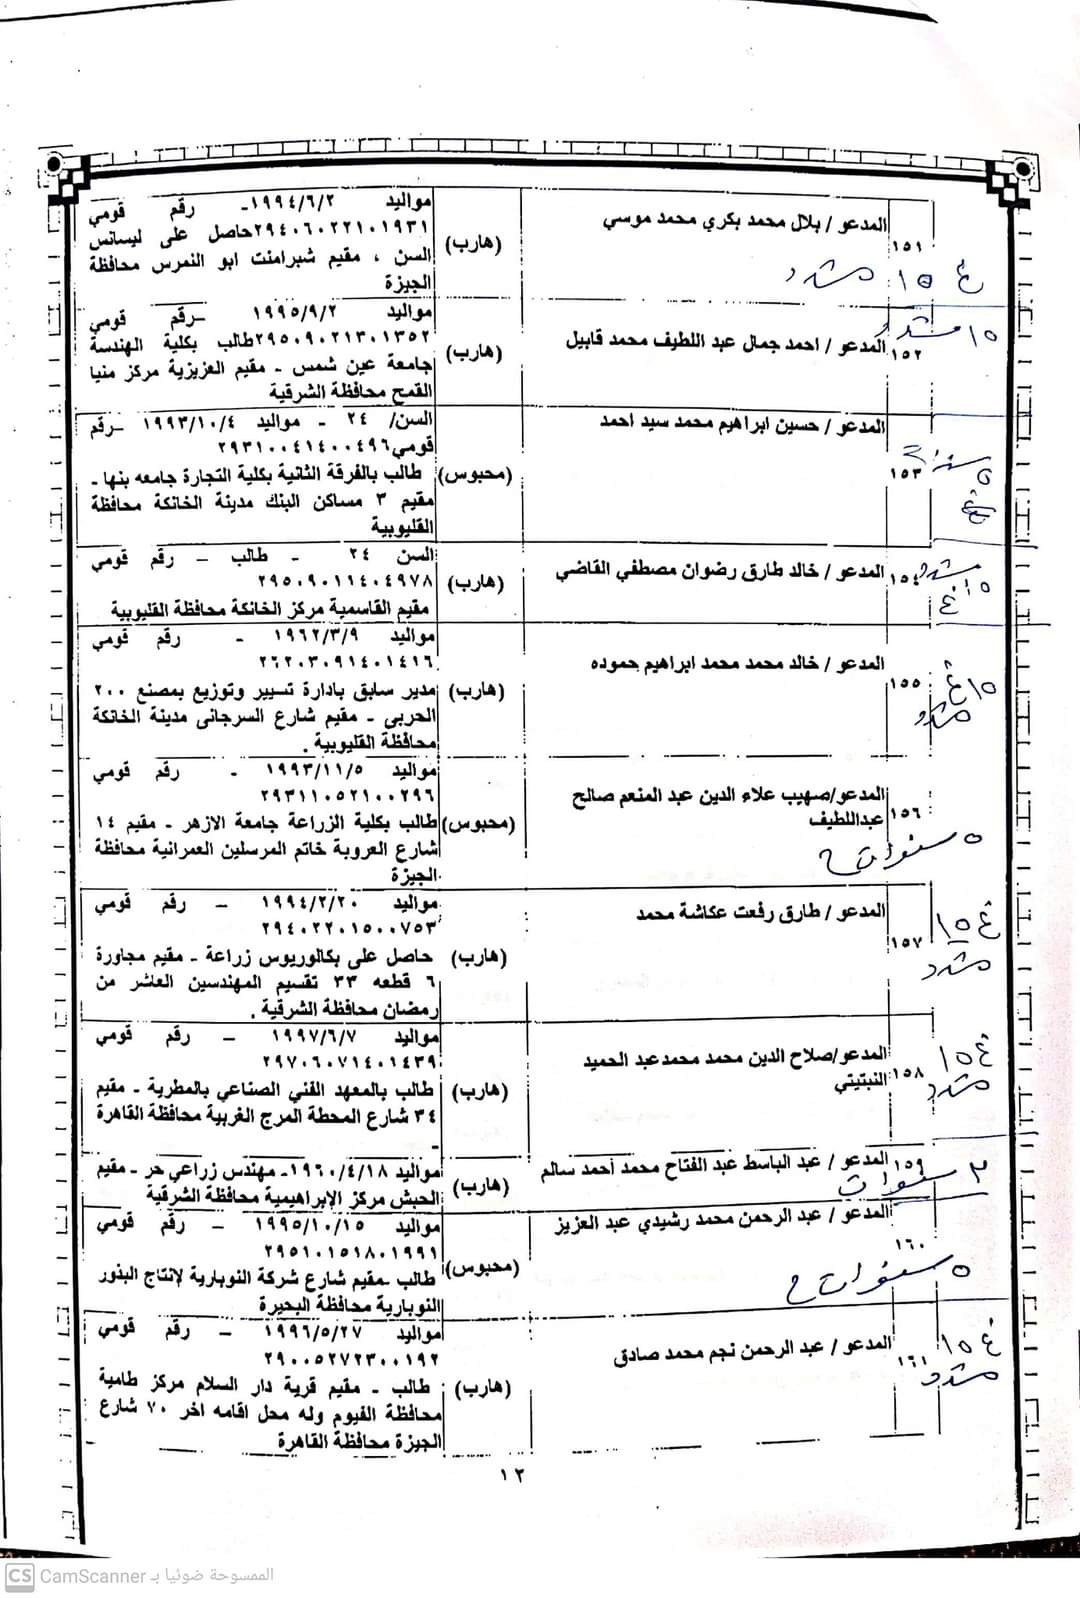 المدعو / بلال محمد بكري محمد موسي
١٥١
غ ١٥ مشدد
(هارب)
مواليد ١٩٩٤/٦/٢- رقم قومي
٢٩٤٠٦٠٢٢١٠١٩٣١حاصل على ليسانس
السن ، مقيم شبرامنت ابو النمرس محافظة
الجيزة
١٥ مشدد
١٥٢
المدعو / احمد جمال عبد اللطيف محمد قابيل
(هارب)
مواليد ١٩٩٥/٩/٢ –رقم قومي
٢٩٥٠٩٠٢١٣٠١٣٥٢طالب بكلية الهندسة
جامعة عين شمس - مقيم العزيزية مركز منيا
القمح محافظة الشرقية
المدعو / حسين ابراهيم محمد سيد احمد
٥ سنوات
١٥٣
(محبوس)
السن/ ٢٤ - مواليد ١٩٩٣/١٠/٤ –رقم
قومي٢٩٣١٠٠٤١٤٠٠٤٩٦
طالب بالفرقة الثانية بكلية التجارة جامعه بنها -
مقيم ٣ مساكن البنك مدينة الخانكة محافظة
القليوبية
مشدد
١٥ غ
١٥٤
المدعو / خالد طارق رضوان مصطفي القاضي
(هارب)
السن ٢٤ - طالب – رقم قومي
٢٩٥٠٩٠١١٤٠٤٩٧٨
مقيم القاسمية مركز الخانكة محافظة القليوبية
المدعو / خالد محمد محمد ابراهيم حموده
١٥٥
١٥ غ
مشدد
(هارب)
مواليد ١٩٦٢/٣/٩ - رقم قومي
٢٦٢٠٣٠٩١٤٠١٤١٦
مدير سابق بادارة تسيير وتوزيع بمصنع ٢٠٠
الحربي - مقيم شارع السرجانى مدينة الخانكة
محافظة القليوبية .
المدعو/صهيب علاء الدين عبد المنعم صالح
عبداللطيف
١٥٦
٥ سنوات ح
(محبوس)
مواليد ١٩٩٣/١١/٥ - رقم قومي
٢٩٣١١٠٥٢١٠٠٢٩٦
طالب بكلية الزراعة جامعة الازهر - مقيم ١٤
شارع العروبة خاتم المرسلين العمرانية محافظة
الجيزة
المدعو / طارق رفعت عكاشة محمد
١٥٧
غ ١٥
مشدد
(هارب)
مواليد ١٩٩٤/٢/٢٠ – رقم قومي
٢٩٤٠٢٢٠١٥٠٠٧٥٣
حاصل على بكالوريوس زراعة - مقيم مجاورة
٦ قطعه ٣٣ تقسيم المهندسين العاشر من
رمضان محافظة الشرقية .
المدعو/صلاح الدين محمد محمدعبد الحميد
النبتيتي
١٥٨
غ ١٥
مشدد
(هارب)
مواليد ١٩٩٧/٦/٧ – رقم قومي
٢٩٧٠٦٠٧١٤٠١٤٣٩
طالب بالمعهد الفني الصناعي بالمطرية - مقيم
٣٤ شارع المحطة المرج الغربية محافظة القاهرة
-
١٥٩
المدعو / عبد الباسط عبد الفتاح محمد أحمد سالم
٣ سنوات
(هارب)
مواليد ١٩٦٠/٤/١٨- مهندس زراعي حر - مقيم
الحبش مركز الإبراهيمية محافظة الشرقية
المدعو / عبد الرحمن محمد رشيدي عبد العزيز
١٦٠
٥ سنوات ح
(محبوس)
مواليد ١٩٩٥/١٠/١٥ – رقم قومي
٢٩٥١٠١٥١٨٠١٩٩١
طالب -مقيم شارع شركة النوبارية لإنتاج البذور
النوبارية محافظة البحيرة
المدعو / عبد الرحمن نجم محمد صادق
١٦١
غ ١٥
مشدد
(هارب)
مواليد ١٩٩٦/٥/٢٧ – رقم قومي
٢٩٠٠٥٢٧٢٣٠٠١٩٢
طالب - مقيم قرية دار السلام مركز طامية
محافظة الفيوم وله محل اقامه اخر ٧٠ شارع
الجيزة محافظة القاهرة
١٢
الممسوحة ضوئيا بـ CamScanner
CS